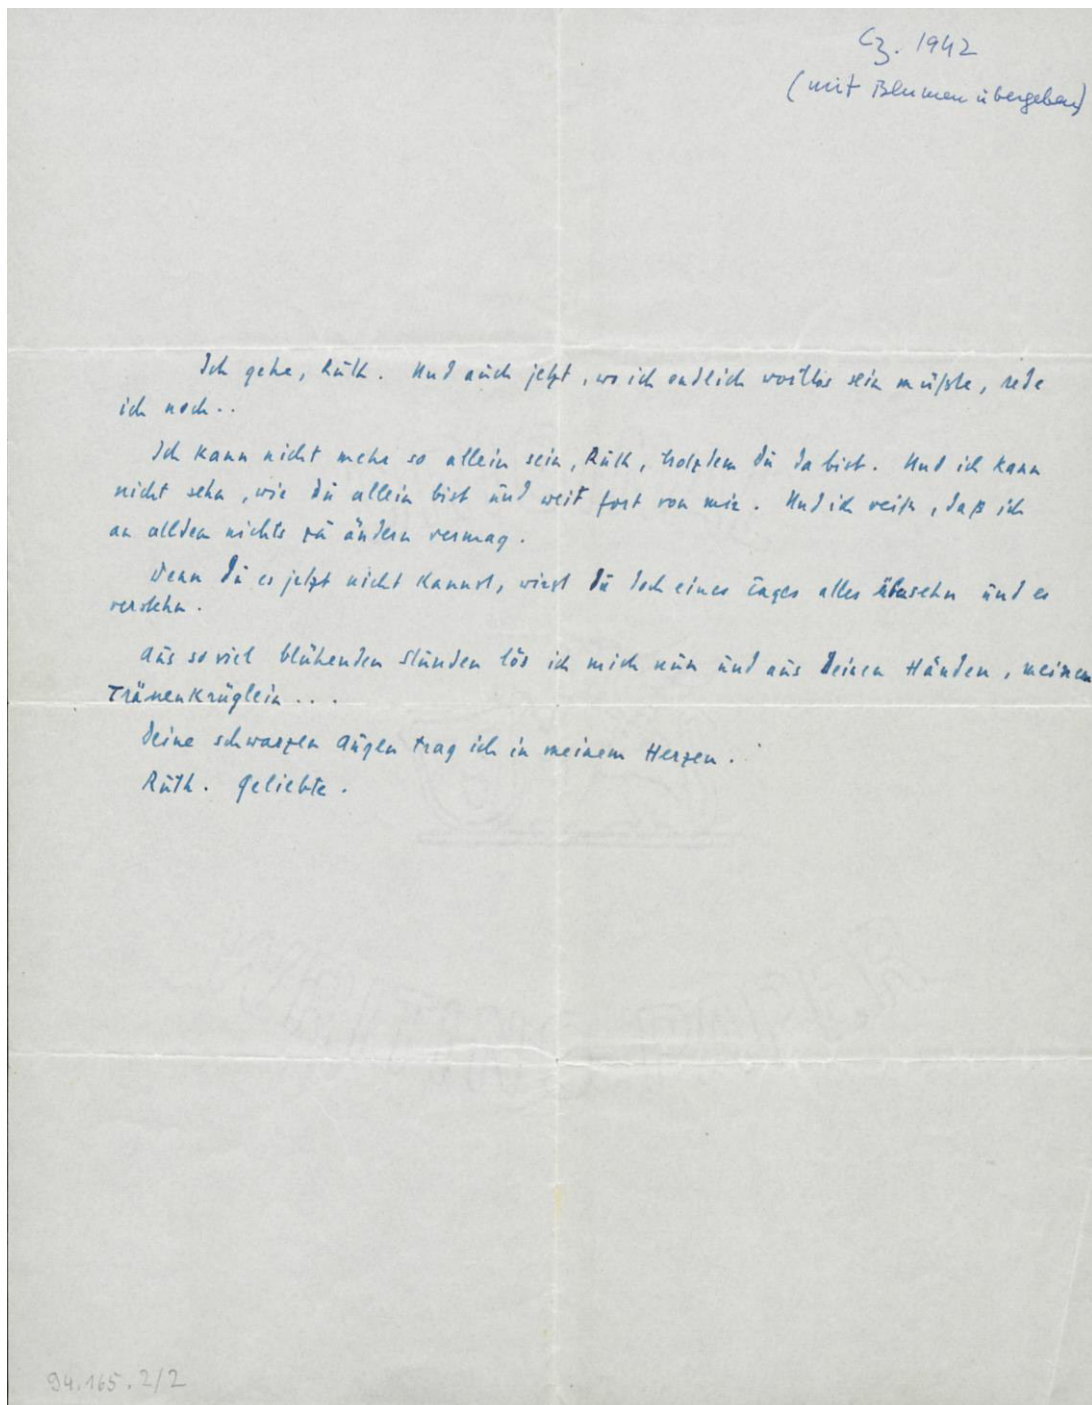 Cz. 1942
(mit Blumen übergeben)
Ich gehe, Ruth. Und auch jetzt, wo ich endlich wortlos sein müßte, rede
ich noch..
Ich kann nicht mehr so allein sein, Ruth, trotzdem du da bist. Und ich kann
nicht sehn, wie du allein bist und weit fort von mir. Und ich weiß, daß ich
an alldem nichts zu ändern vermag.
Wenn du es jetzt nicht kannst, wirst du doch eines Tages alles übersehn und es
verstehn.
Aus so viel blühenden Stunden lös ich mich nun und aus deinen Händen, meinem
Tränenkrüglein...
Deine schwarzen Augen trag ich in meinem Herzen.
Ruth. Geliebte.
94.165.2/2